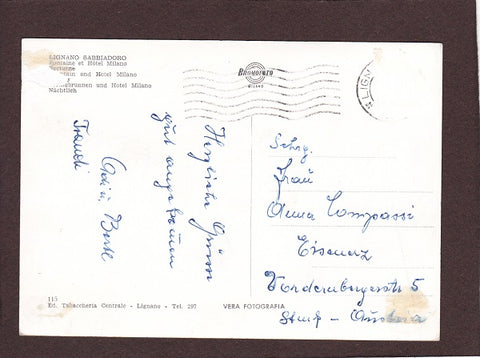 LIGNANO SABBIADORO
Fontaine et Hôtel Milano
Nocturne
and Hotel Milano
brunnen und Hotel Milano
Nächtlich
MILANO
LIGN
Herzliche Grüsse
gut angekommen
Bertl
Trandi
Sehrg.
Frau
Anna Compassi
Eisenerz
Vordernbergerstr 5
Stmk - Austria
115
Ed. Tabaccheria Centrale - Lignano - Tel. 297
VERA FOTOGRAFIA